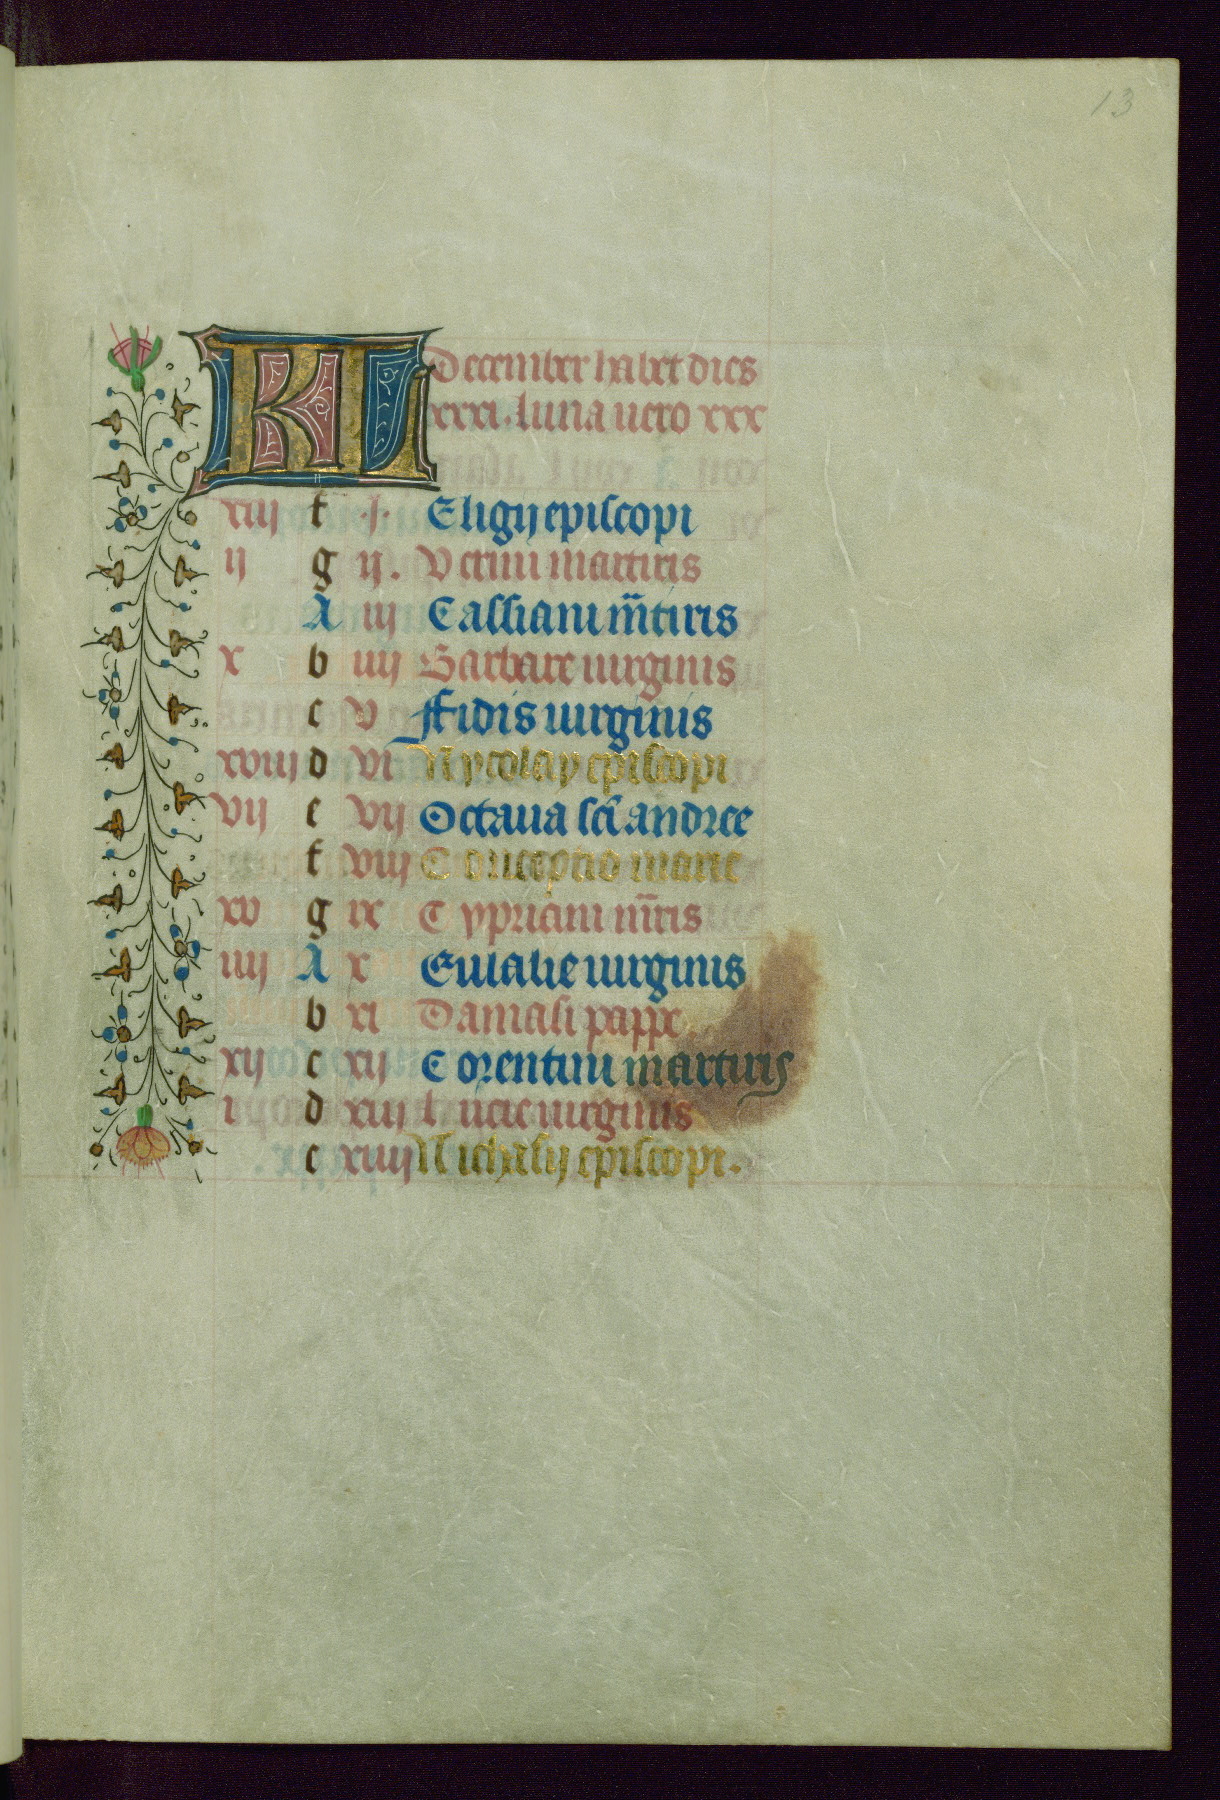 13
KL December habet dies
xxxi. luna uero xxx
xiij f .j. Eligij episcopi
ij g ij. Uerini martiris
A iij Cassiani m̄tiris
x b iiij Barbare uirginis
c v Ffidis uirginis
xviij d vi Nycolay episcopi
vij e vij Octaua sc̄i andree
f viij Conceptio marie
xv g ix Cypriani m̄ris
iiij A x Eulalie uirginis
b xi Damasi pappe
xij c xij Corentini martiris
i d xiij Lucie uirginis
e xiiij Nichasij episcopi.